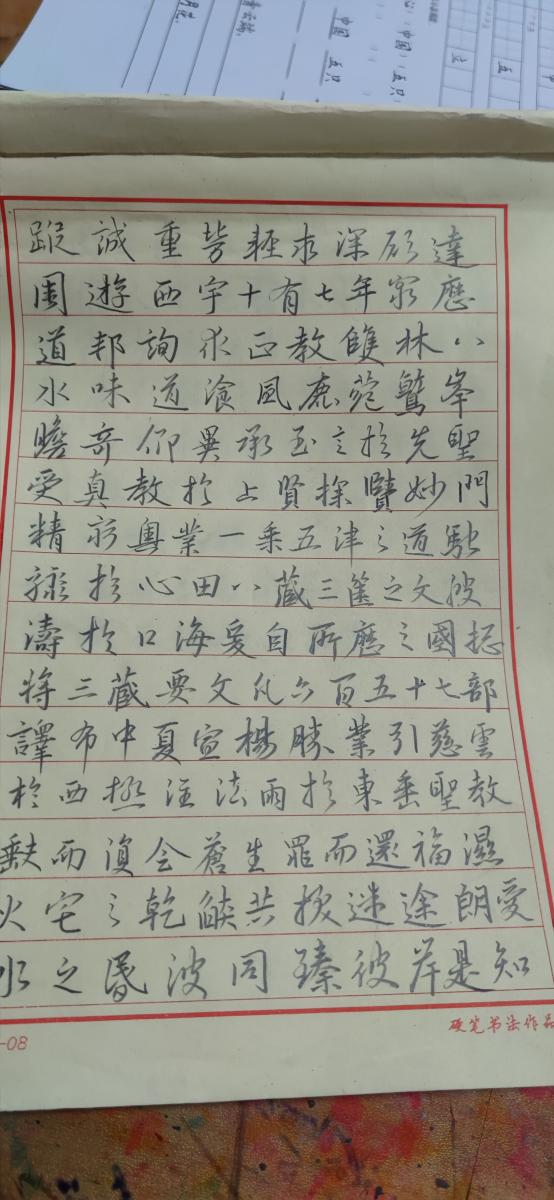 蹤誠重勞輕求深願達
周遊西宇十有七年窮歷
道邦詢求正教雙林八
水味道湌風鹿菀鷲峯
瞻奇仰異承至言於先聖
受真教於上賢探賾妙門
精窮奧業一乘五津之道馳
驟於心田八藏三篋之文波
濤於口海爰自所歷之國揔
將三藏要文凡六百五十七部
譯布中夏宣楊勝業引慈雲
於西極注法雨於東垂聖教
缺而復全蒼生罪而還福濕
火宅之乾燄共拔迷途朗愛
水之昬波同臻彼岸是知
硬笔书法作品
-08
中国 五只
中国 五只
五